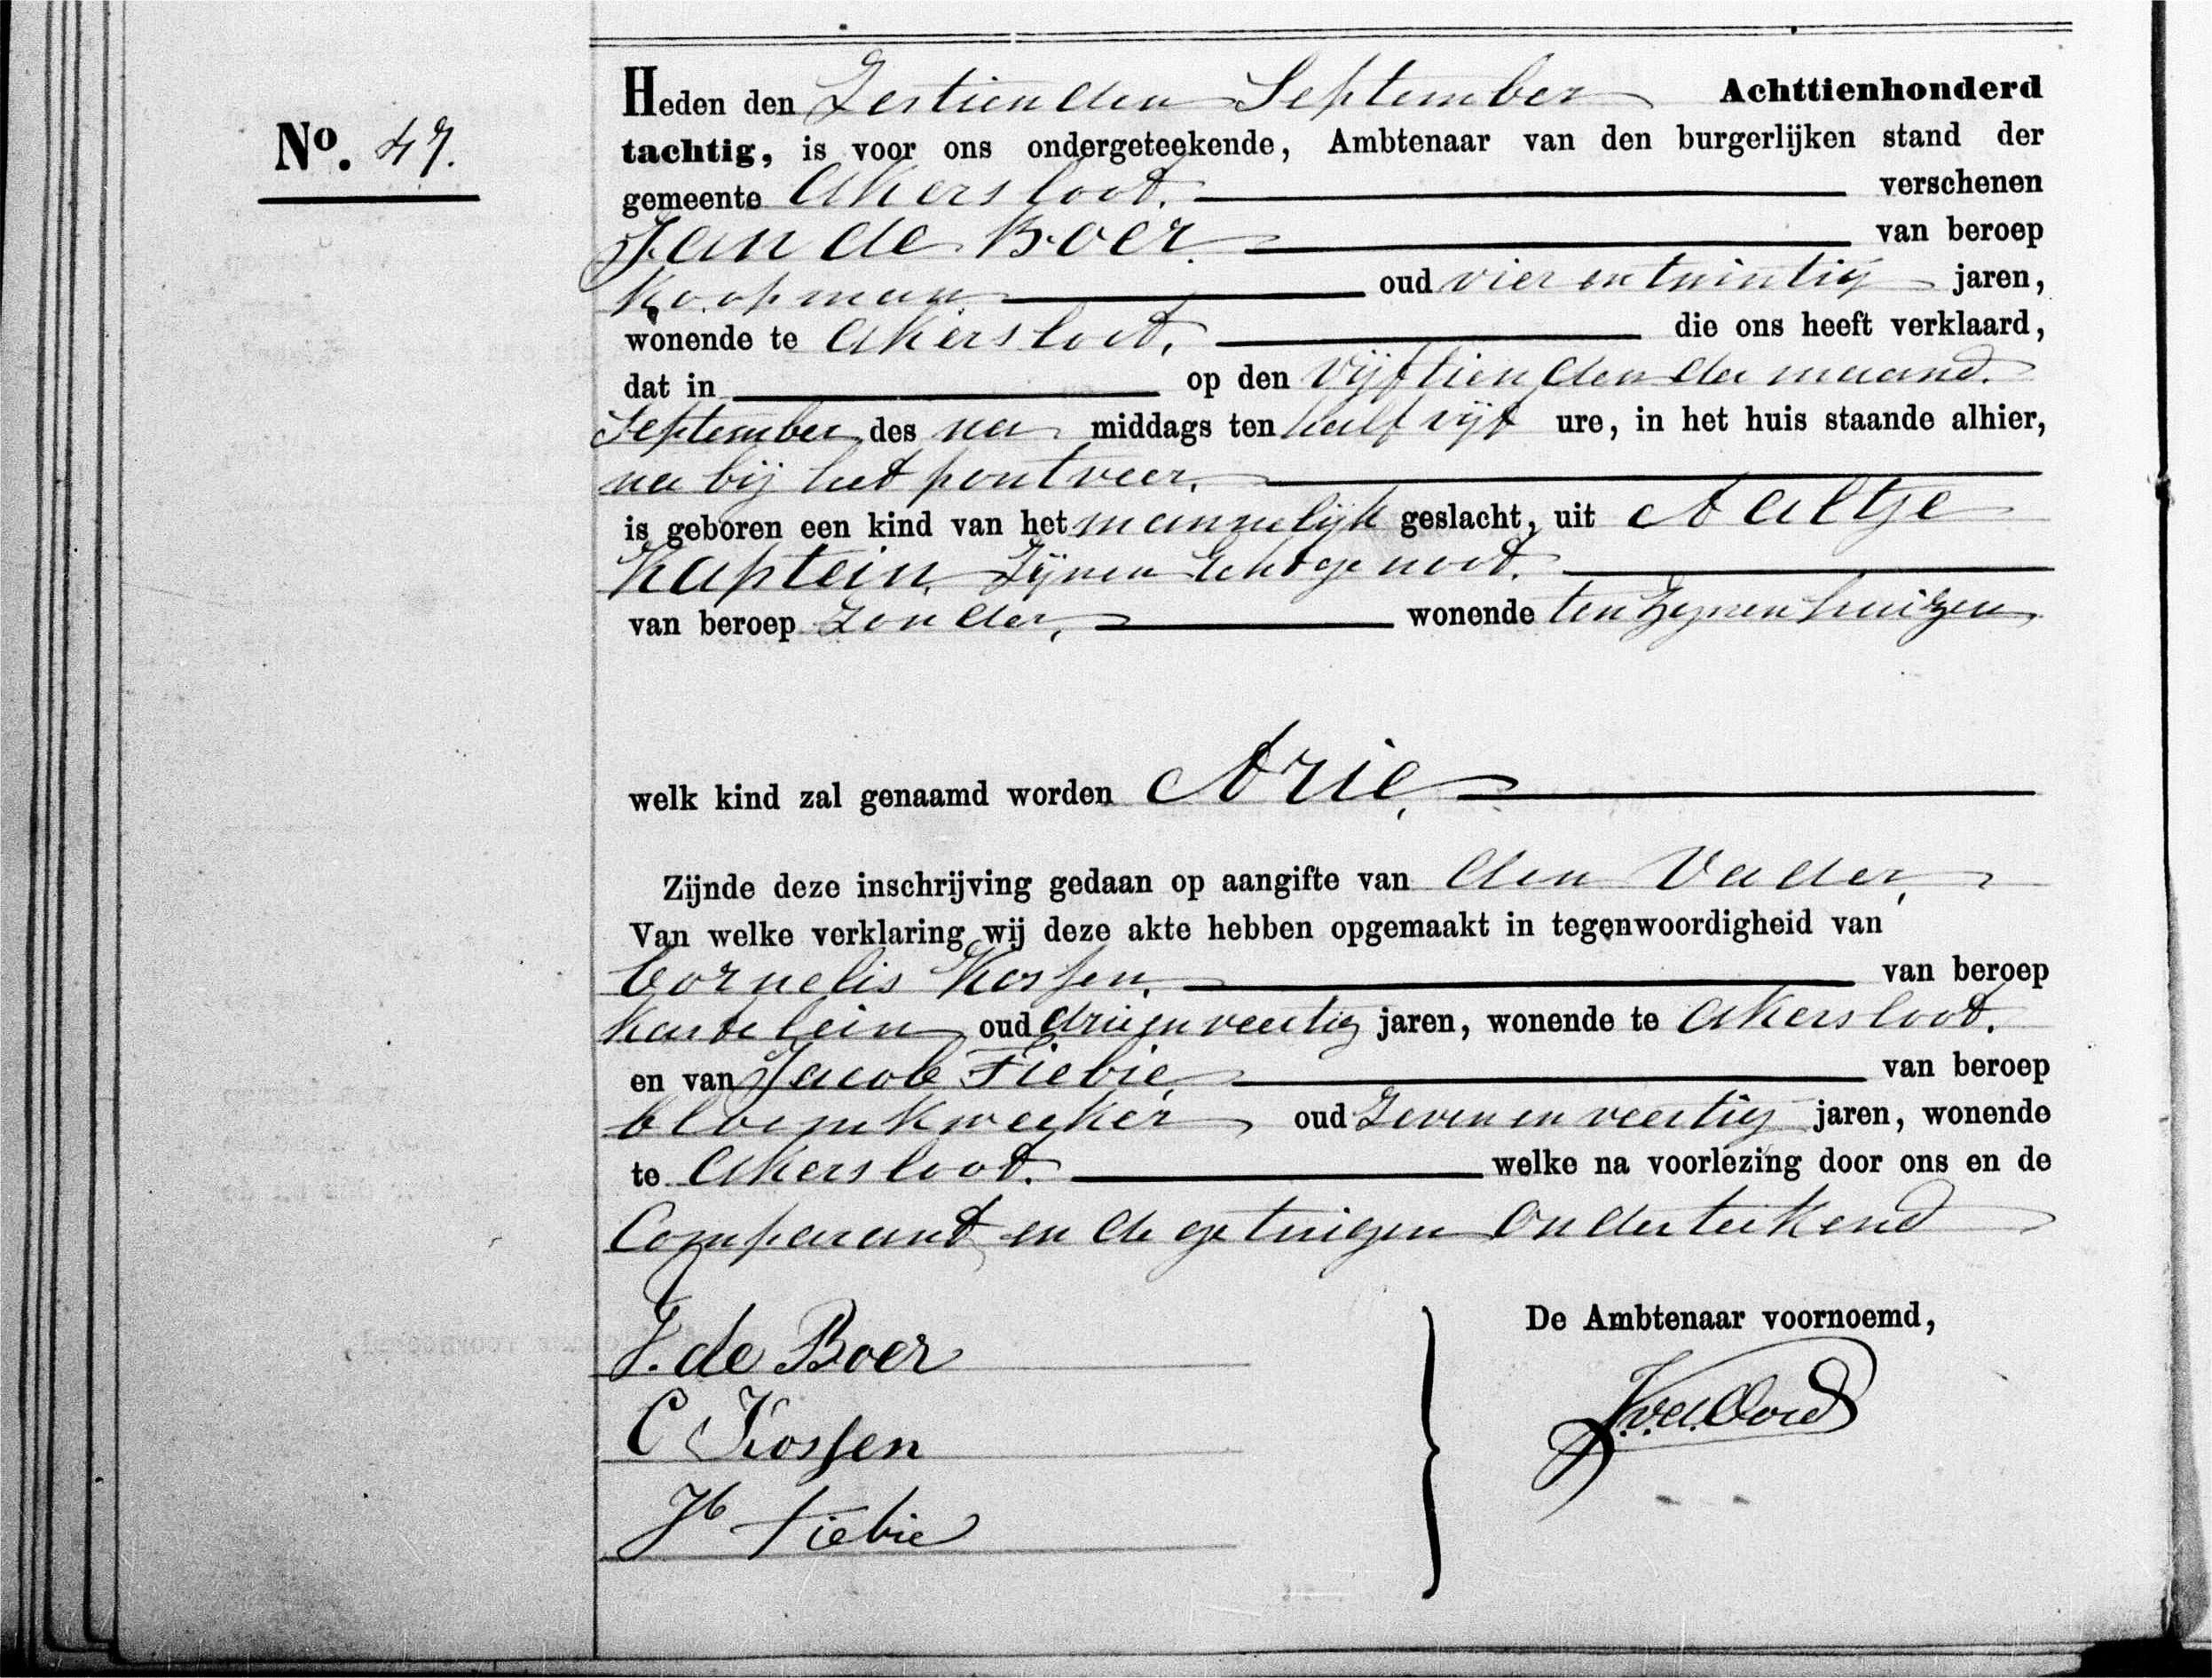 No. 47.
Heden den Zestienden September Achttienhonderd
tachtig, is voor ons ondergeteekende, Ambtenaar van den burgerlijken stand der
gemeente Akersloot. verschenen
Jan de Boer van beroep
Koopman oud vier en twintig jaren,
wonende te Akersloot, die ons heeft verklaard,
dat in op den vijftienden der maand
September des na middags ten half vijf ure, in het huis staande alhier,
na bij het pontveer,
is geboren een kind van het mannelijk geslacht, uit Aaltje
Kaptein, Zijnen Echtgenoot.
van beroep Zonder, wonende ten Zijnen huizen,
welk kind zal genaamd worden Arie,
Zijnde deze inschrijving gedaan op aangifte van den Vader,
Van welke verklaring wij deze akte hebben opgemaakt in tegenwoordigheid van
Cornelis Kossen, van beroep
Kastelein oud drie en veertig jaren, wonende te Akersloot.
en van Jacob Fiebie, van beroep
bloemkweeker oud Zeven en veertig jaren, wonende
te Akersloot. welke na voorlezing door ons en de
Comparant en de getuigen Onderteekend
De Ambtenaar voornoemd,
J. de Boer
C Kossen
Jb Fiebie